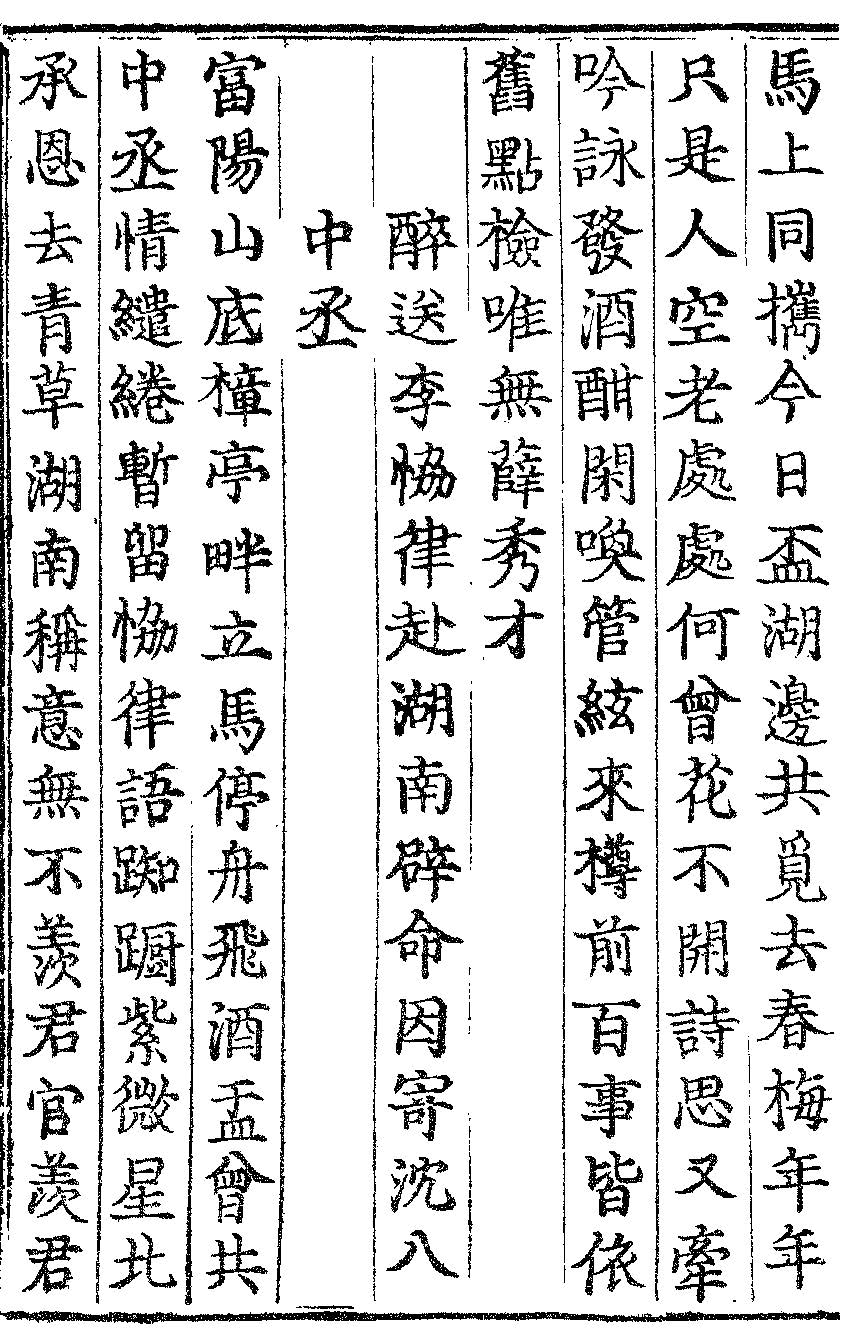 馬上同攜今日盃湖邊共覓去春梅年年
只是人空老處處何曾花不開詩思又牽
吟詠發酒酣閑喚管絃來樽前百事皆依
舊點檢唯無薛秀才
醉送李恊律赴湖南辟命因寄沈八
中丞
富陽山底樟亭畔立馬停舟飛酒盂曾共
中丞情繾綣暫留恊律語踟蹰紫微星北
承恩去青草湖南稱意無不羨君官羨君